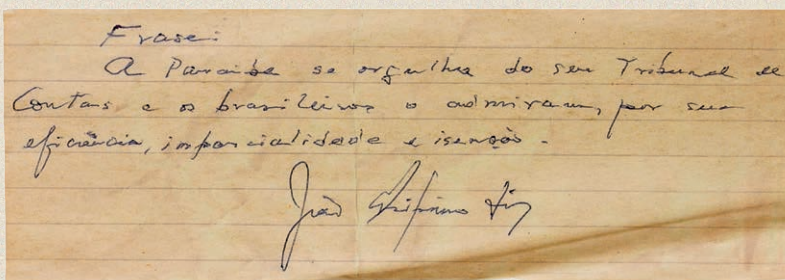 Frase:
A Paraiba se orgulha do seu Tribunal de
Contas e os brasileiros o admiram, por sua
eficiência, imparcialidade e isenção.
João